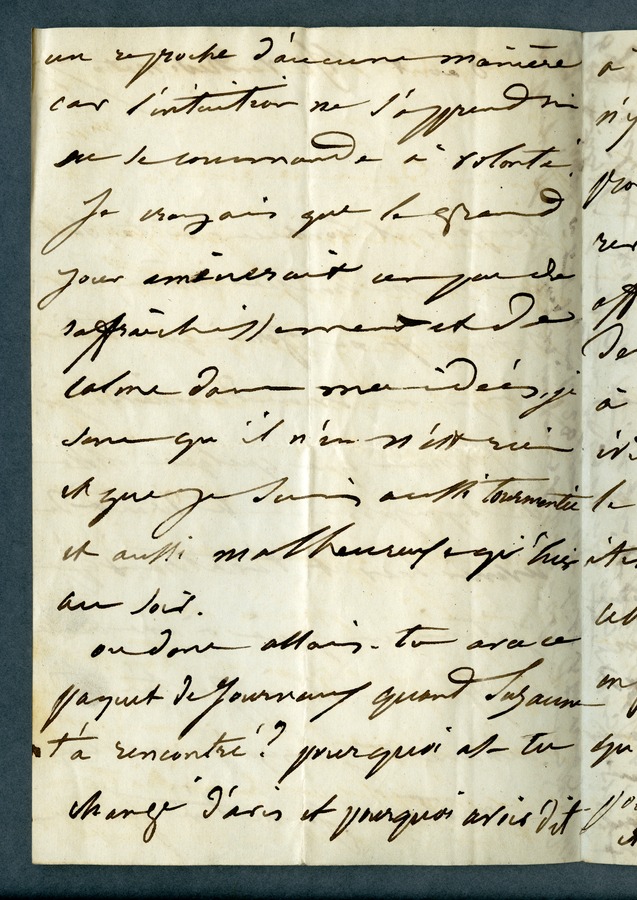 un reproche d'aucune manière
car l'intuition ne s'apprend ni
ne se commande à volonté.
Je croyais que le grand
jour amènerait un peu de
raffraîchissement et de
calme dans mes idées, je
sens qu'il n'en n'est rien
et que je suis aussi tourmentée
et aussi malheureuse qu'hier
au soir.
ou donc allais-tu avec ce
paquet de journaux quand Suzanne
t'a rencontré? pourquoi as-tu
changé d'avis et pourquoi avais dit
à
n'y
le
à